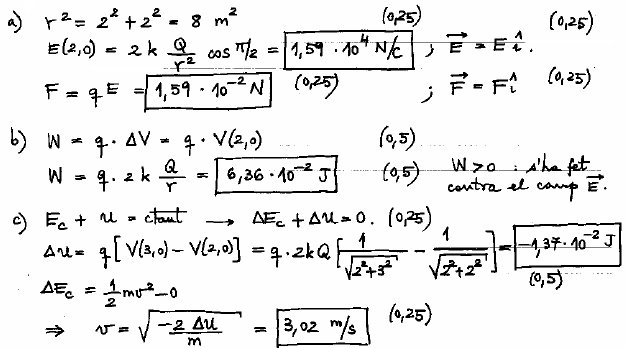 a) r² = 2² + 2² = 8 m² (0,25) (0,25)
E(2,0) = 2 k Q/r² cos π/2 = 1,59 · 10⁴ N/C ; E⃗ = E î.
F = q E = 1,59 · 10⁻² N (0,25) ; F⃗ = F î (0,25)
b) W = q · ΔV = q · V(2,0) (0,5)
W = q · 2 k Q/r = 6,36 · 10⁻² J (0,5) W > 0 : s'ha fet
contra el camp E⃗.
c) Ec + u = ctant → ΔEc + Δu = 0. (0,25)
Δu = q [V(3,0) − V(2,0)] = q · 2kQ [1/√(2²+3²) − 1/√(2²+2²)] = −1,37 · 10⁻² J
(0,5)
ΔEc = 1/2 mv² − 0
⇒ v = √(−2 Δu/m) = 3,02 m/s (0,25)